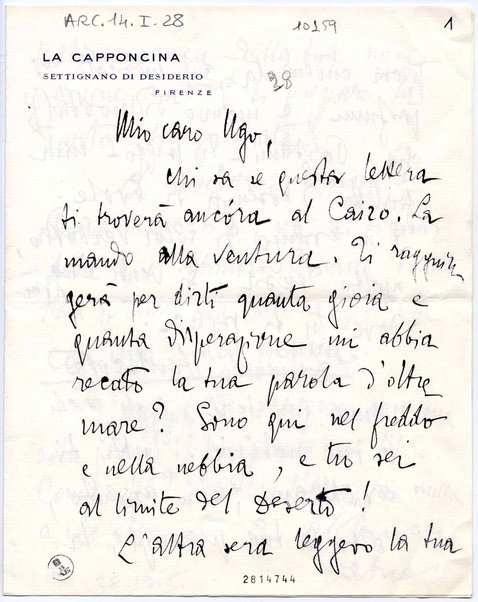 ARC. 14. I. 28
10159
1
LA CAPPONCINA
SETTIGNANO DI DESIDERIO
FIRENZE
28
Mio caro Ugo,
chi sa se questa lettera
ti troverà ancóra al Cairo. La
mando alla ventura. Ti raggiun
gerà per dirti quanta gioia e
quanta disperazione mi abbia
recato la tua parola d'oltre
mare? Sono qui nel freddo
e nella nebbia, e tu sei
al limite del Deserto!
L'altra sera leggevo la tua
2814744